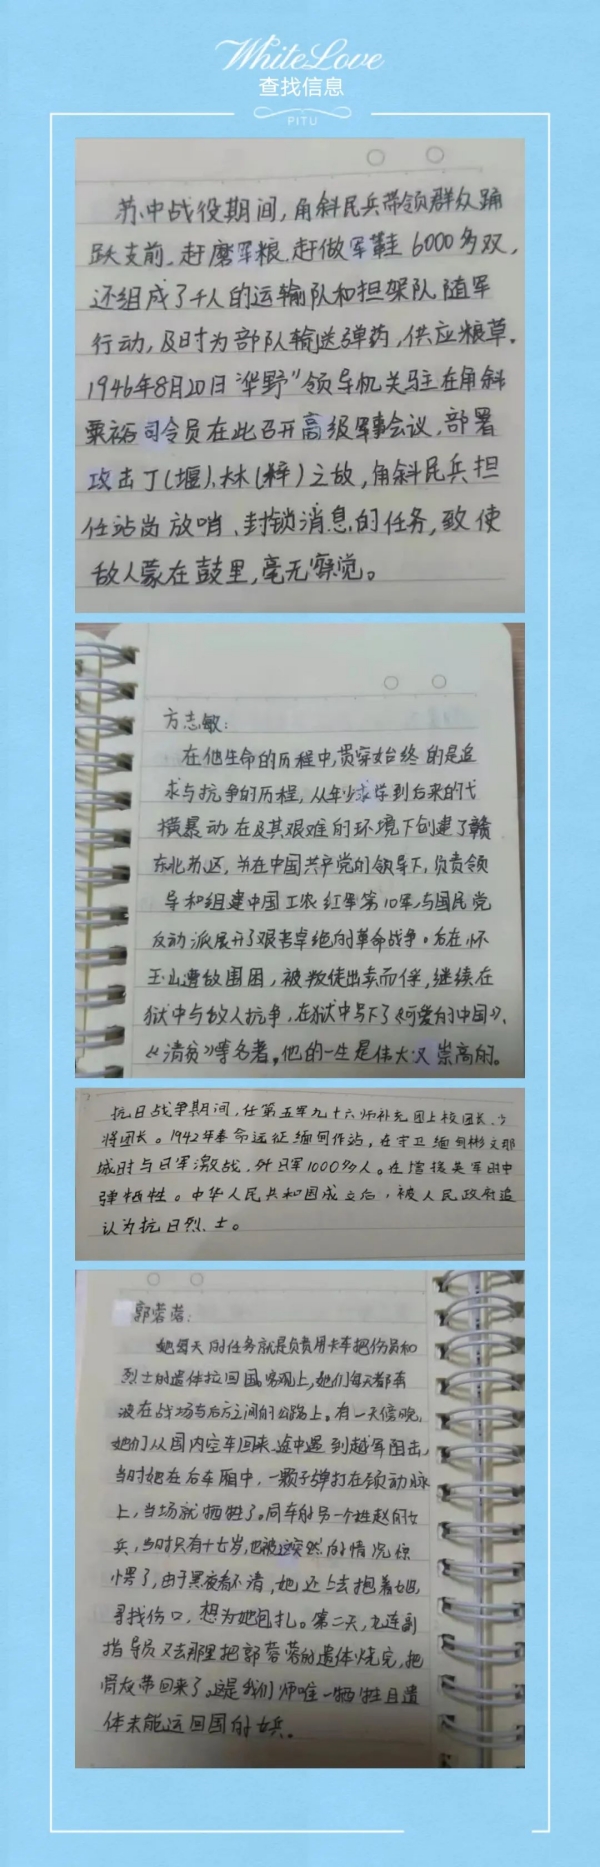 WhiteLove
查找信息
PITU
苏中战役期间,角斜民兵带领群众踊
跃支前,赶磨军粮,赶做军鞋6000多双,
还组成了千人的运输队和担架队随军
行动,及时为部队输送弹药,供应粮草。
1946年8月20日“华野”领导机关驻在角斜
粟裕司令员在此召开高级军事会议,部署
攻击丁(堰)、林(梓)之敌,角斜民兵担
任站岗放哨、封锁消息的任务,致使
敌人蒙在鼓里,毫无察觉。
方志敏:
在他生命的历程中,贯穿始终的是追
求与抗争的历程,从年少求学到后来的弋
横暴动在及其艰难的环境下创建了赣
东北苏区,并在中国共产党的领导下,负责领
导和组建中国工农红军第10军,与国民党
反动派展开了艰苦卓绝的革命战争。后在怀
玉山遭敌围困,被叛徒出卖而俘,继续在
狱中与敌人抗争,在狱中写下了《可爱的中国》、
《清贫》等名著。他的一生是伟大又崇高的。
抗日战争期间,任第五军九十六师补充团上校团长、少
将团长。1942年奉命远征缅甸作站,在守卫缅甸彬文那
城时与日军激战,歼日军1000多人。在增援英军时中
弹牺牲。中华人民共和国成立后,被人民政府追
认为抗日烈士。
郭蓉蓉:
她每天的任务就是负责用卡车把伤员和
烈士的遗体拉回国。客观上,她们每天都奔
波在战场与后方之间的公路上。有一天傍晚,
她们从国内空车回来,途中遇到越军阻击,
当时她在后车厢中,一颗子弹打在颈动脉
上,当场就牺牲了。同车的另一个姓赵的女
兵,当时只有十七岁,也被这突然的情况惊
愣了,由于黑夜看不清,她还上去抱着她,
寻找伤口,想为她包扎。第二天,九连副
指导员又去那里把郭蓉蓉的遗体烧完,把
骨灰带回来了。这是我们师唯一牺牲且遗
体未能运回国的女兵。